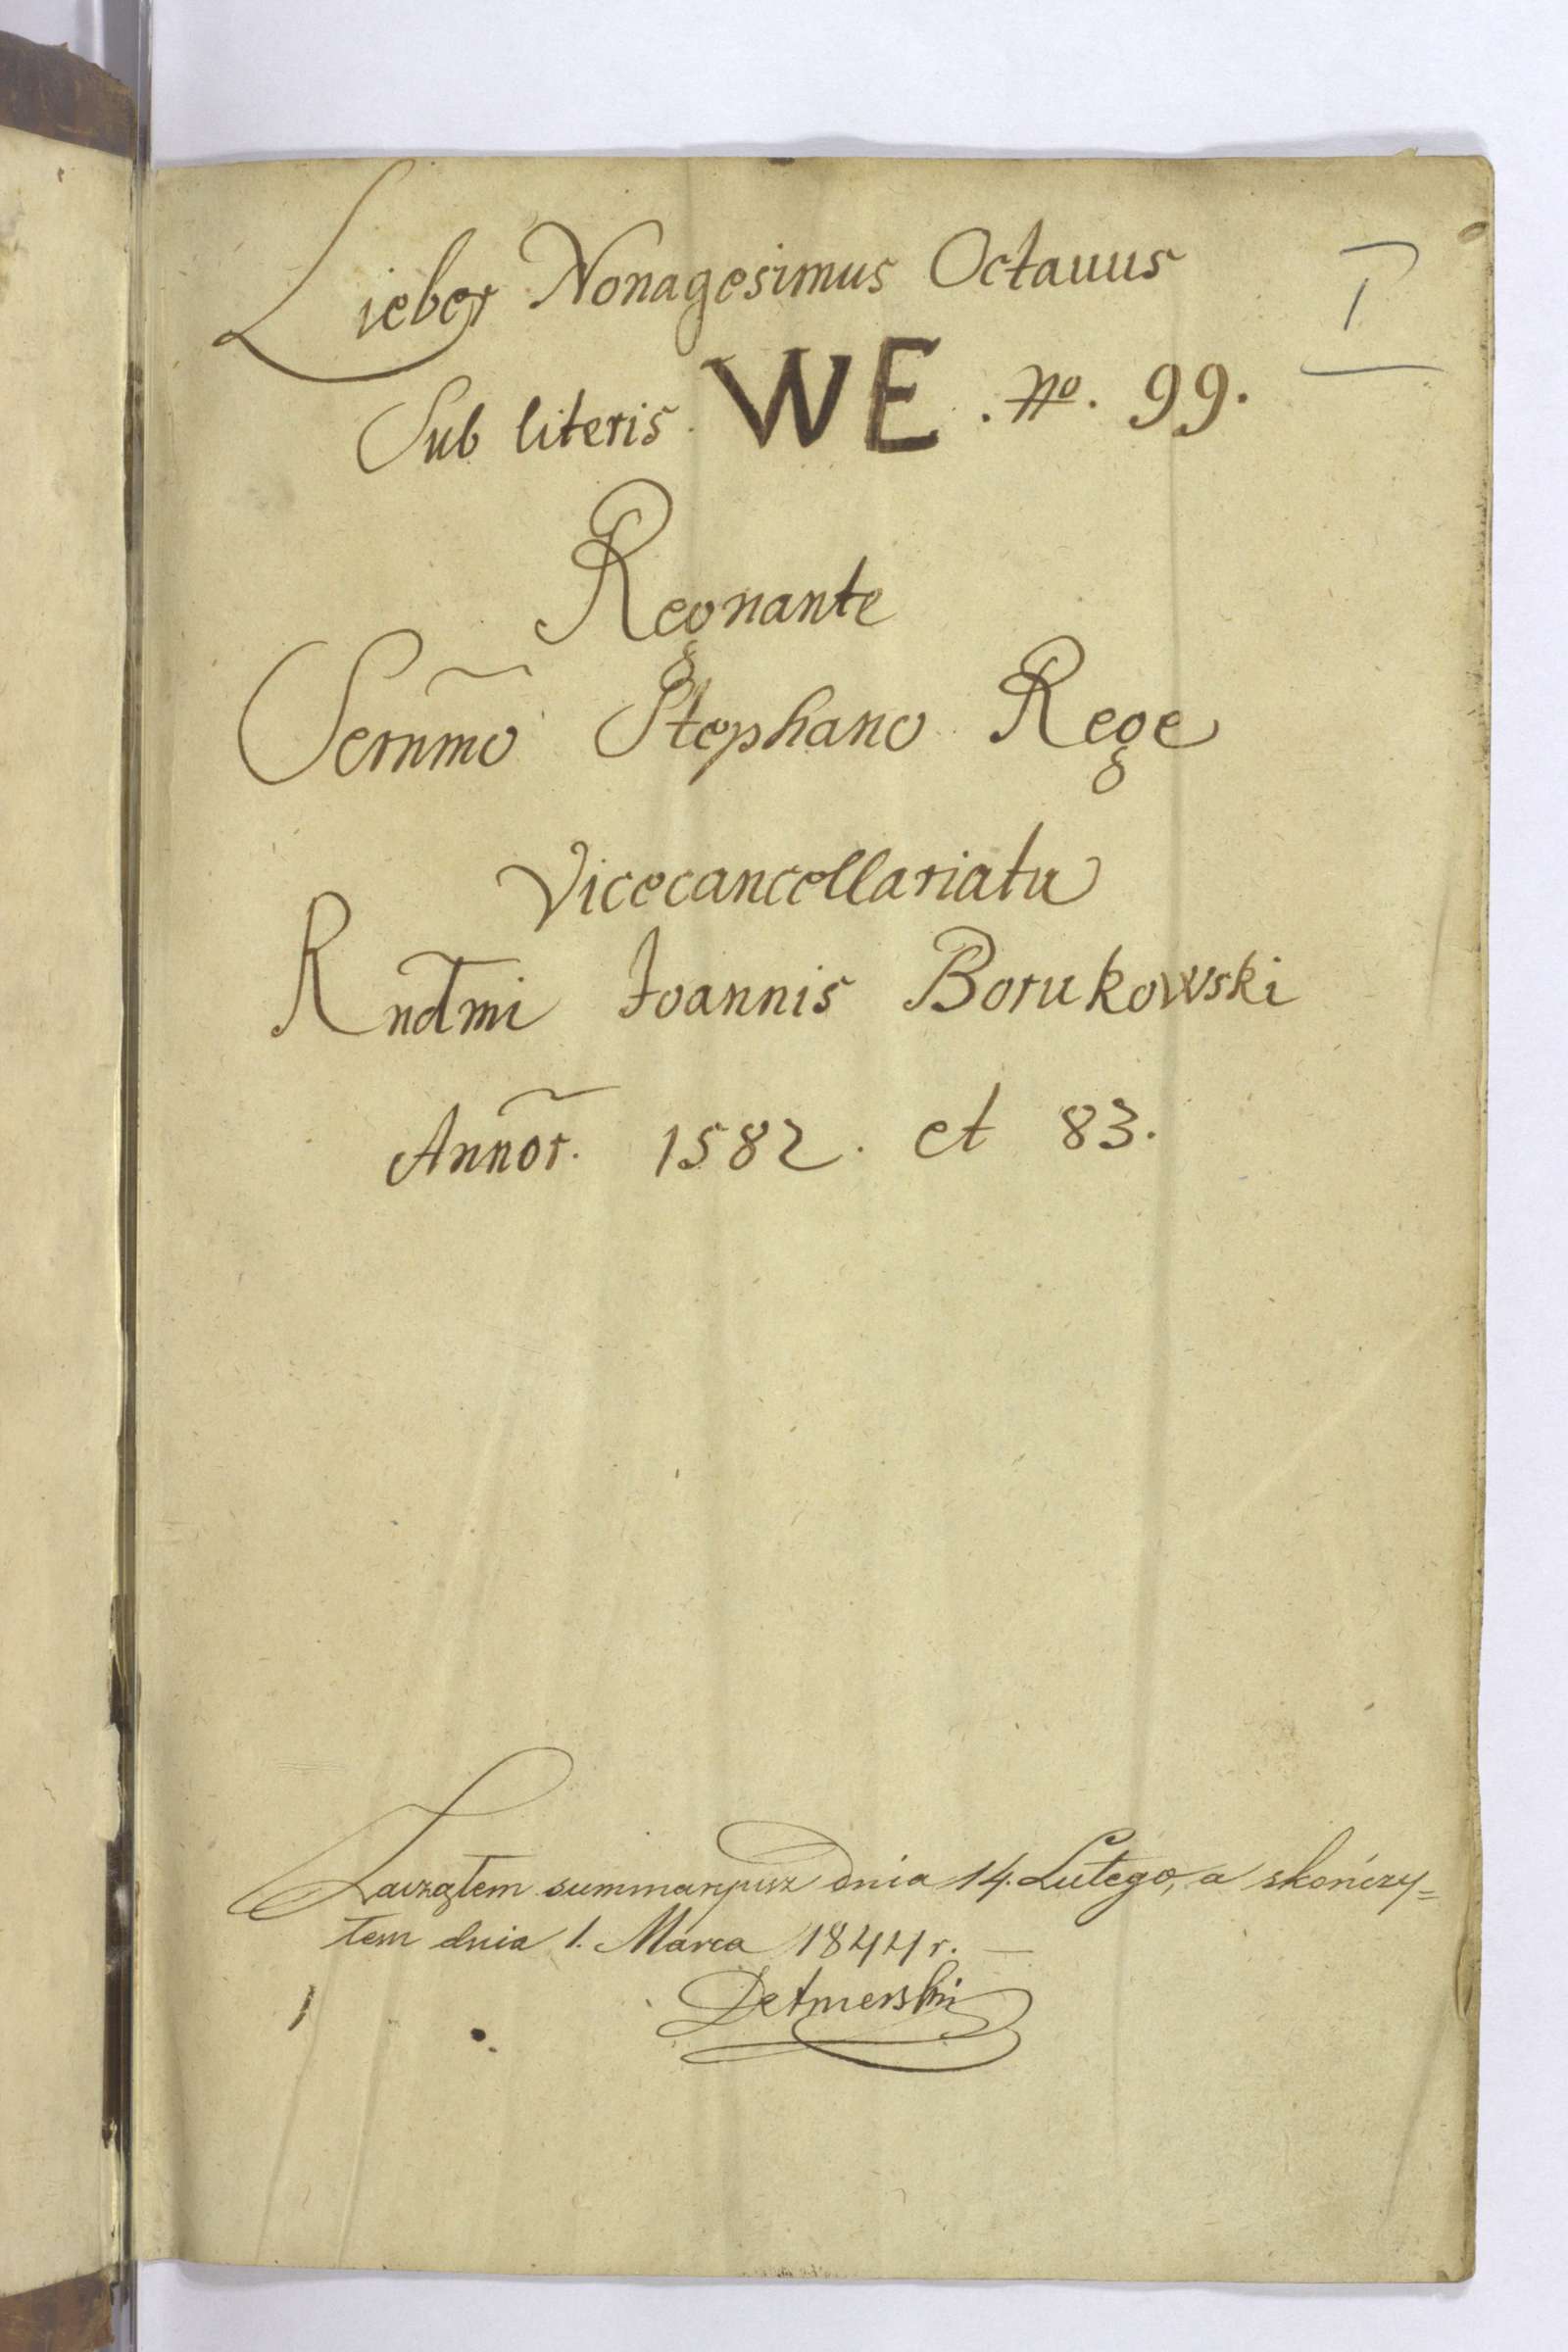 Lieber Nonagesimus Octauus
I
Sub literis. WE. No. 99.
Regnante
Sernmo Stephano Rege
Vicecancellariatu
Rndmi Joannis Borukowski
Annor. 1582. et 83.
Zacząłem summaryusz dnia 14. Lutego, a skończy=
łem dnia 1. Marca 1844 r. —
Detmerski